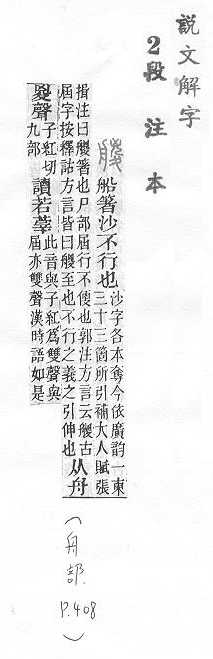 說文解字
2段注本
艐
船箸沙不行也
沙字各本奪今依廣韵一東
三十三箇所引補大人賦張
揖注曰艐箸也尸部屆行不便也郭注方言云艐古
屆字按釋詁方言皆曰艐至也不行之義之引伸也
从舟
㚇聲
子紅切
九部
讀若莘
此音與子紅爲雙聲與
屆亦雙聲漢時語如是
(舟部 P.408)